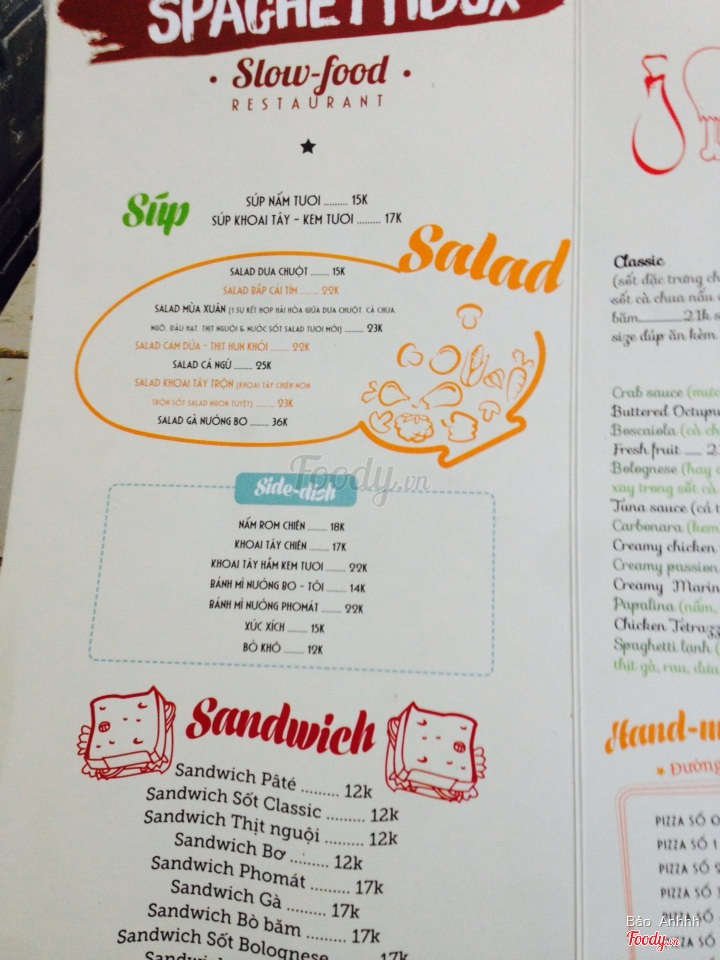 SPAGHETTIBOX
• Slow-food •
RESTAURANT
Súp
SÚP NẤM TƯƠI ......... 15K
SÚP KHOAI TÂY - KEM TƯƠI ......... 17K
Salad
SALAD DƯA CHUỘT ........ 15K
SALAD BẮP CẢI TÍM ........ 22K
SALAD MÙA XUÂN (1 SỰ KẾT HỢP HÀI HÒA GIỮA DƯA CHUỘT, CÀ CHUA,
NGÔ, ĐẬU HẠT, THỊT NGUỘI & NƯỚC SỐT SALAD TƯƠI MỚI) ........ 23K
SALAD CAM DỨA - THỊT HUN KHÓI ........ 22K
SALAD CÁ NGỪ ........ 25K
SALAD KHOAI TÂY TRỘN (KHOAI TÂY CHIÊN NON
TRỘN SỐT SALAD NGON TUYỆT) ........ 23K
SALAD GÀ NƯỚNG BƠ ........ 36K
Foody.vn
Side-dish
NẤM RƠM CHIÊN ........ 18K
KHOAI TÂY CHIÊN ........ 17K
KHOAI TÂY HẦM KEM TƯƠI ........ 22K
BÁNH MÌ NƯỚNG BƠ - TỎI ........ 14K
BÁNH MÌ NƯỚNG PHOMÁT ........ 22K
XÚC XÍCH ........ 15K
BÒ KHÔ ........ 12K
Sandwich
Sandwich Pâté ......... 12k
Sandwich Sốt Classic ......... 12k
Sandwich Thịt nguội .......... 12k
Sandwich Bơ .......... 12k
Sandwich Phomát .......... 17k
Sandwich Gà .......... 17k
Sandwich Bò băm .......... 17k
Sandwich Sốt Bolognese .......... 17k
Classic
(sốt đặc trưng
sốt cà chua nấu
băm..........21k
size đúp ăn kèm
Crab sauce
Buttered
Boscaiola (cà
Fresh fruit ....
Bolognese (hay
xay trong sốt cà
Tuna sauce (cá
Carbonara
Creamy chicken
Creamy passion
Creamy
Papalina (nấm,
Chicken
Spaghetti lạnh
thịt gà, rau, dưa
PIZZA SỐ
PIZZA SỐ 1
PIZZA SỐ
PIZZA SỐ
PIZZA SỐ
PIZZA SỐ
Bảo Anhhh
Foody.vn